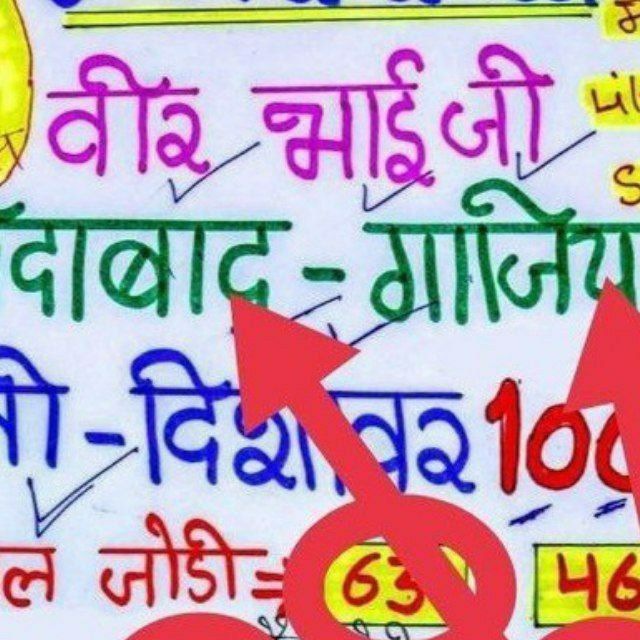 वीर भाईजी
दाबाद - गाजिय
- दिशावर 100
ल जोडी = 63 46